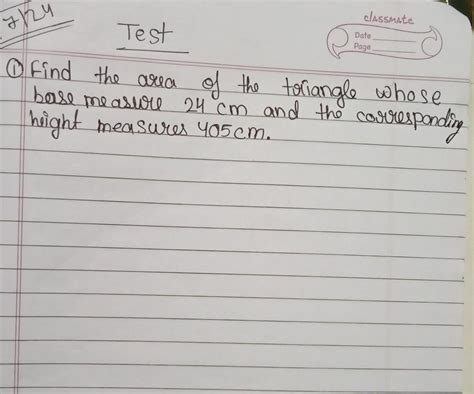 7/24
Test
classmate
Date
Page
① Find the area of the toriangle whose
base measure 24 cm and the corresponding
height measures 405cm.